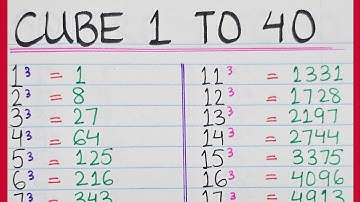 CUBE 1 TO 40
1³ = 1
2³ = 8
3³ = 27
4³ = 64
5³ = 125
6³ = 216
7³ = 343
11³ = 1331
12³ = 1728
13³ = 2197
14³ = 2744
15³ = 3375
16³ = 4096
17³ = 4913